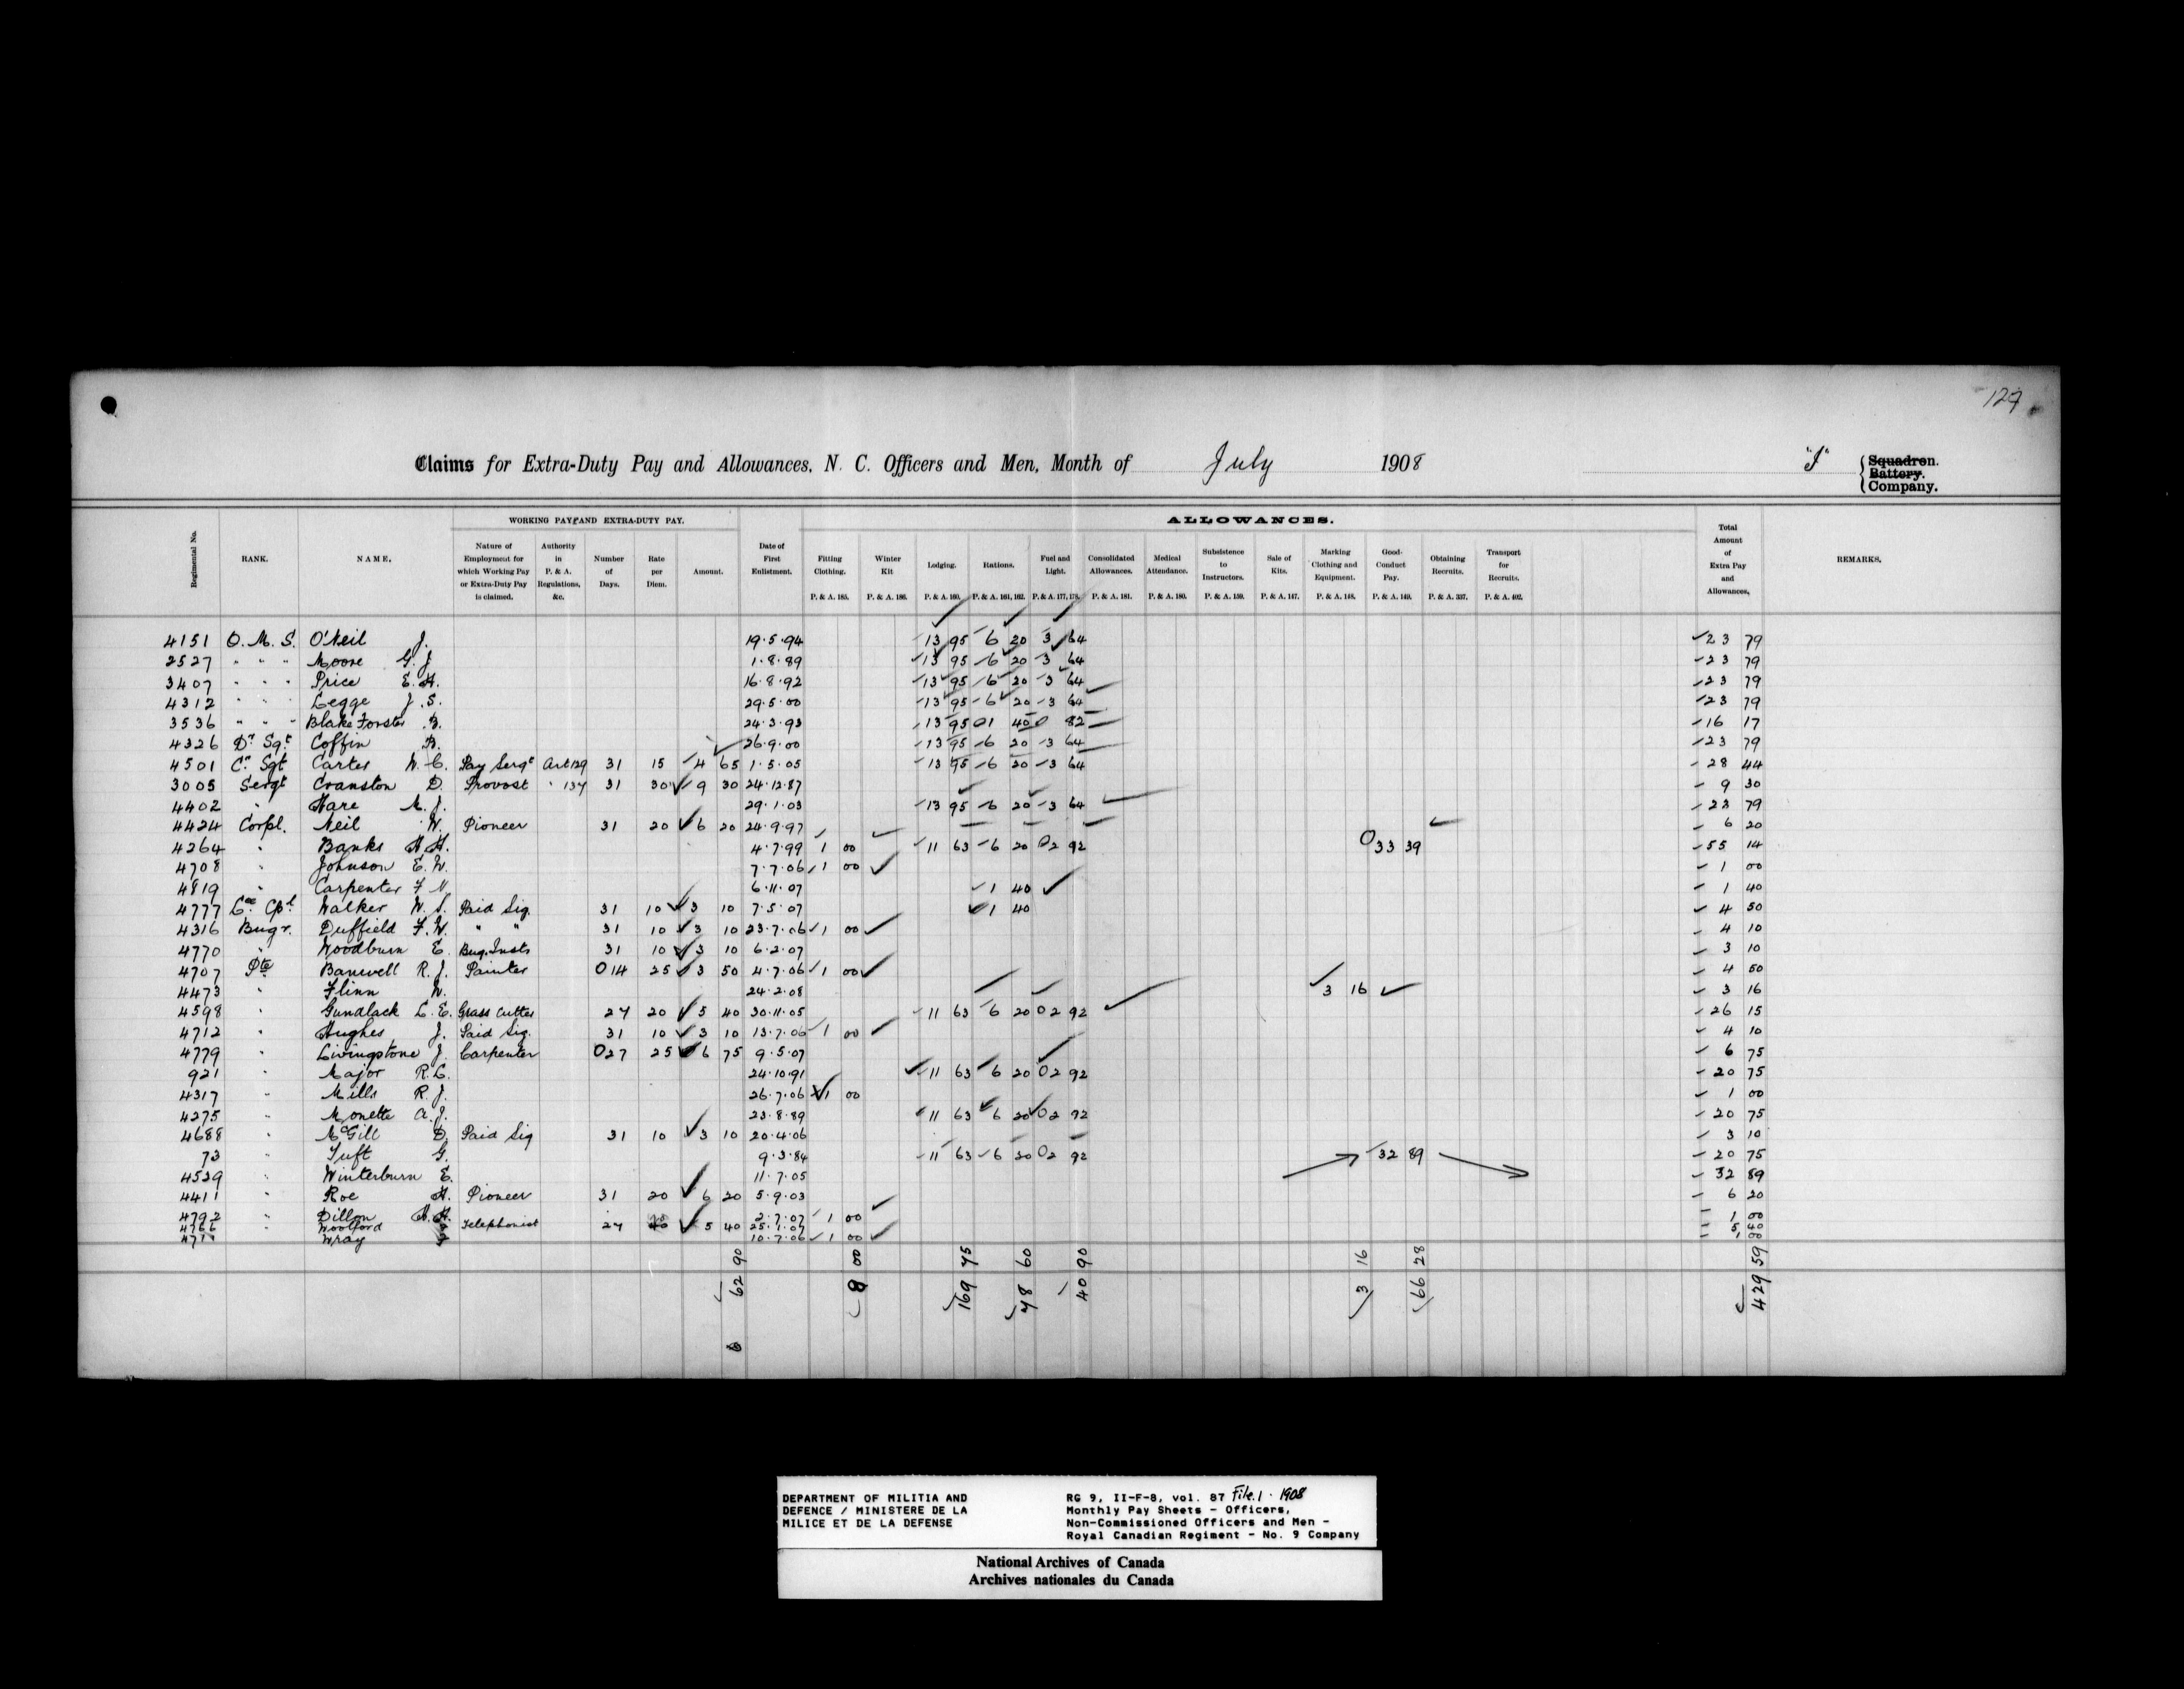 127
Claims for Extra-Duty Pay and Allowances, N. C. Officers and Men, Month of July 1908 "I" { Squadron. Battery. Company.
WORKING PAY AND EXTRA-DUTY PAY. ALLOWANCES.
Regimental No. RANK. NAME. Nature of Employment for which Working Pay or Extra-Duty Pay is claimed. Authority in P. & A. Regulations, &c. Number of Days. Rate per Diem. Amount. Date of First Enlistment. Fitting Clothing. P. & A. 185. Winter Kit P. & A. 186. Lodging. P. & A. 160. Rations. P. & A. 161, 162. Fuel and Light. P. & A. 177, 178. Consolidated Allowances. P. & A. 181. Medical Attendance. P. & A. 180. Subsistence to Instructors. P. & A. 159. Sale of Kits. P. & A. 147. Marking Clothing and Equipment. P. & A. 148. Good-Conduct Pay. P. & A. 149. Obtaining Recruits. P. & A. 337. Transport for Recruits. P. & A. 402. Total Amount of Extra Pay and Allowances. REMARKS.
4151 Q. M. S. O'Neil J. 19.5.94 13 95 6 20 3 64 23 79
2527 " " " Moore G. J. 1.8.89 13 95 6 20 3 64 23 79
3407 " " " Price E. H. 16.8.92 13 95 6 20 3 64 23 79
4312 " " " Legge J. S. 29.5.00 13 95 6 20 3 64 23 79
3536 " " " Blake Forster B. 24.3.93 13 95 1 40 82 16 17
4326 Dr Sgt Coffin B. 26.9.00 13 95 6 20 3 64 23 79
4501 Cr Sgt Carter W. C. Pay Sergt Art 129 31 15 4 65 1.5.05 13 95 6 20 3 64 28 44
3005 Sergt Cranston D. Provost " 134 31 30 9 30 24.12.87 9 30
4402 " Hare M. J. 29.1.03 13 95 6 20 3 64 23 79
4424 Corpl. Neil W. Pioneer 31 20 6 20 24.9.97 6 20
4264 " Banks H. H. 4.7.99 1 00 11 63 6 20 2 92 33 39 55 14
4708 " Johnson E. W. 7.7.06 1 00 1 00
4819 " Carpenter F 6.11.07 1 40 1 40
4777 Lce Cpl Walker W. S. Paid Sig. 31 10 3 10 7.5.07 1 40 4 50
4316 Bugr. Duffield F. W. " " 31 10 3 10 23.7.06 1 00 4 10
4770 " Woodburn E. Bug. Insts 31 10 3 10 6.2.07 3 10
4707 Pte Banwell R. J. Painter 14 25 3 50 4.7.06 1 00 4 50
4473 " Flinn W. 24.2.08 3 16 3 16
4598 " Gundlack L. E. Grass Cutter 27 20 5 40 30.11.05 11 63 6 20 2 92 26 15
4712 " Hughes J. Paid Sig. 31 10 3 10 13.7.06 1 00 4 10
4779 " Livingstone J. Carpenter 27 25 6 75 9.5.07 6 75
921 " Major R. L. 24.10.91 11 63 6 20 2 92 20 75
4317 " Mills R. J. 26.7.06 1 00 1 00
4275 " Monette A. J. 23.8.89 11 63 6 20 2 92 20 75
4688 " McGill D. Paid Sig 31 10 3 10 20.4.06 3 10
73 " Tuft G. 9.3.84 11 63 6 20 2 92 20 75
4529 " Winterburn E. 11.7.05 32 89 32 89
4411 " Roe H. Pioneer 31 20 6 20 5.9.03 6 20
4792 " Dillon H. H. 2.7.07 1 00 1 00
4766 " Woolford Telephonist 27 20 5 40 25.1.07 5 40
Wray 10.7.06 1 00 1 00
62 90 8 00 169 75 78 60 40 90 3 16 66 28 429 59
DEPARTMENT OF MILITIA AND
DEFENCE / MINISTERE DE LA
MILICE ET DE LA DEFENSE
RG 9, II-F-8, vol. 87 File.1 . 1908
Monthly Pay Sheets - Officers,
Non-Commissioned Officers and Men -
Royal Canadian Regiment - No. 9 Company
National Archives of Canada
Archives nationales du Canada